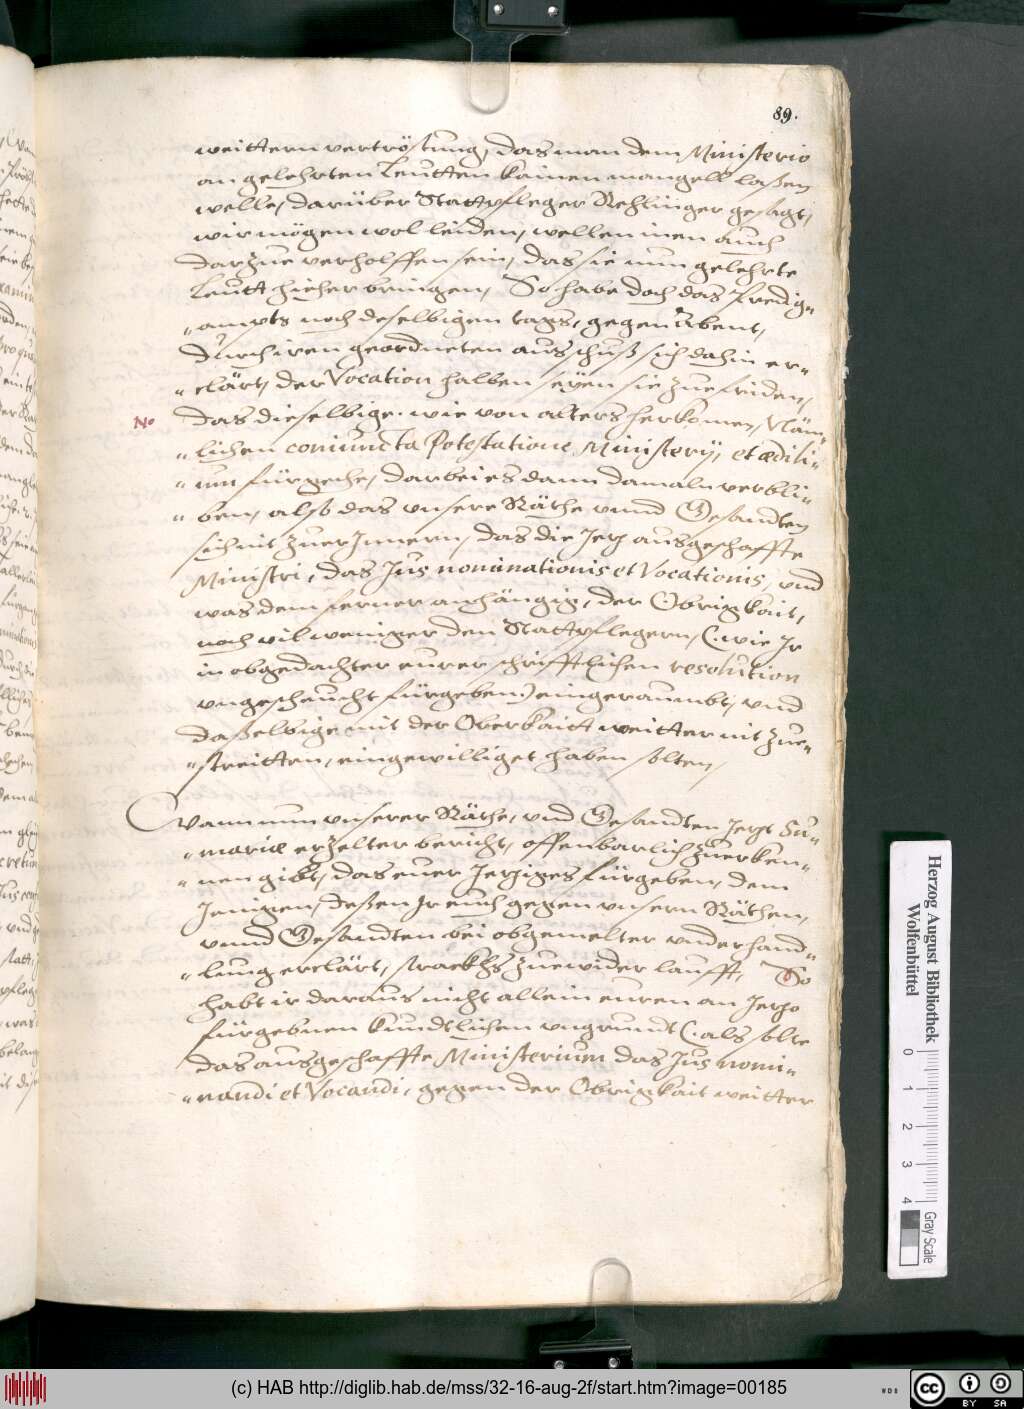 89.
weittern vertröstung, das man dem Ministerio
an gelehrten Leutten kainen mangell laßen
welle, darüber Stattpfleger Rehlinger gesagt,
wir mögen wol leiden, wellen inen auch
darzue verholffen sein, das sie nun gelehrte
Leutt hieher bringen, So habe doch das Predig-
ampts noch deselbigen tags, gegen Abent,
durch iren geordneten ausschuß sich dahin er-
clärt, der Vocation halben seyen sie zue friden,
No das dieselbige wie von alters herkomen, Näm-
lichen coniuncta Potestatione Ministerij, et ædili-
um fürgehe, darbei es dann damaln verbli-
ben, alß das unsere Räthe unnd Gesandten
sich nit zuerInnern, das die Jetz ausgeschaffte
Ministri, das Jus nominationis et Vocationis, und
was dem ferner anhängig, der Obrigkait,
noch vil weniger den Stattpflegern, (wie Jr
in obgedachter eurer schrifftlichen resolution
ungescheucht fürgeben) eingeraumbt, und
daßelbige mit der Oberkaitt weitter nit zue
streitten, eingewilliget haben solten,
Wann nun unserer Räthe, und Gesandten Jetzt Su-
mariæ erzelter bericht, offenbarlich zuerken-
nen gibt, das euer Jetziges fürgeben, dem
Jenigen, deßen Jr euch gegen unsern Räthen,
unnd Gesandten bei obgemelter underhand-
lung erclärt, strackhs zuewider laufft, So
habt ir daraus nicht allein euren an Jetzo
fürgebnen kundtlichen ungrundt (als solte
das ausgeschaffte Ministerium das Jus nomi-
nandi et Vocandi, gegen der Obrigkait weitter
Herzog August Bibliothek
Wolfenbüttel
0 1 2 3 4
Gray Scale
(c) HAB http://diglib.hab.de/mss/32-16-aug-2f/start.htm?image=00185
WDB
cc BY SA